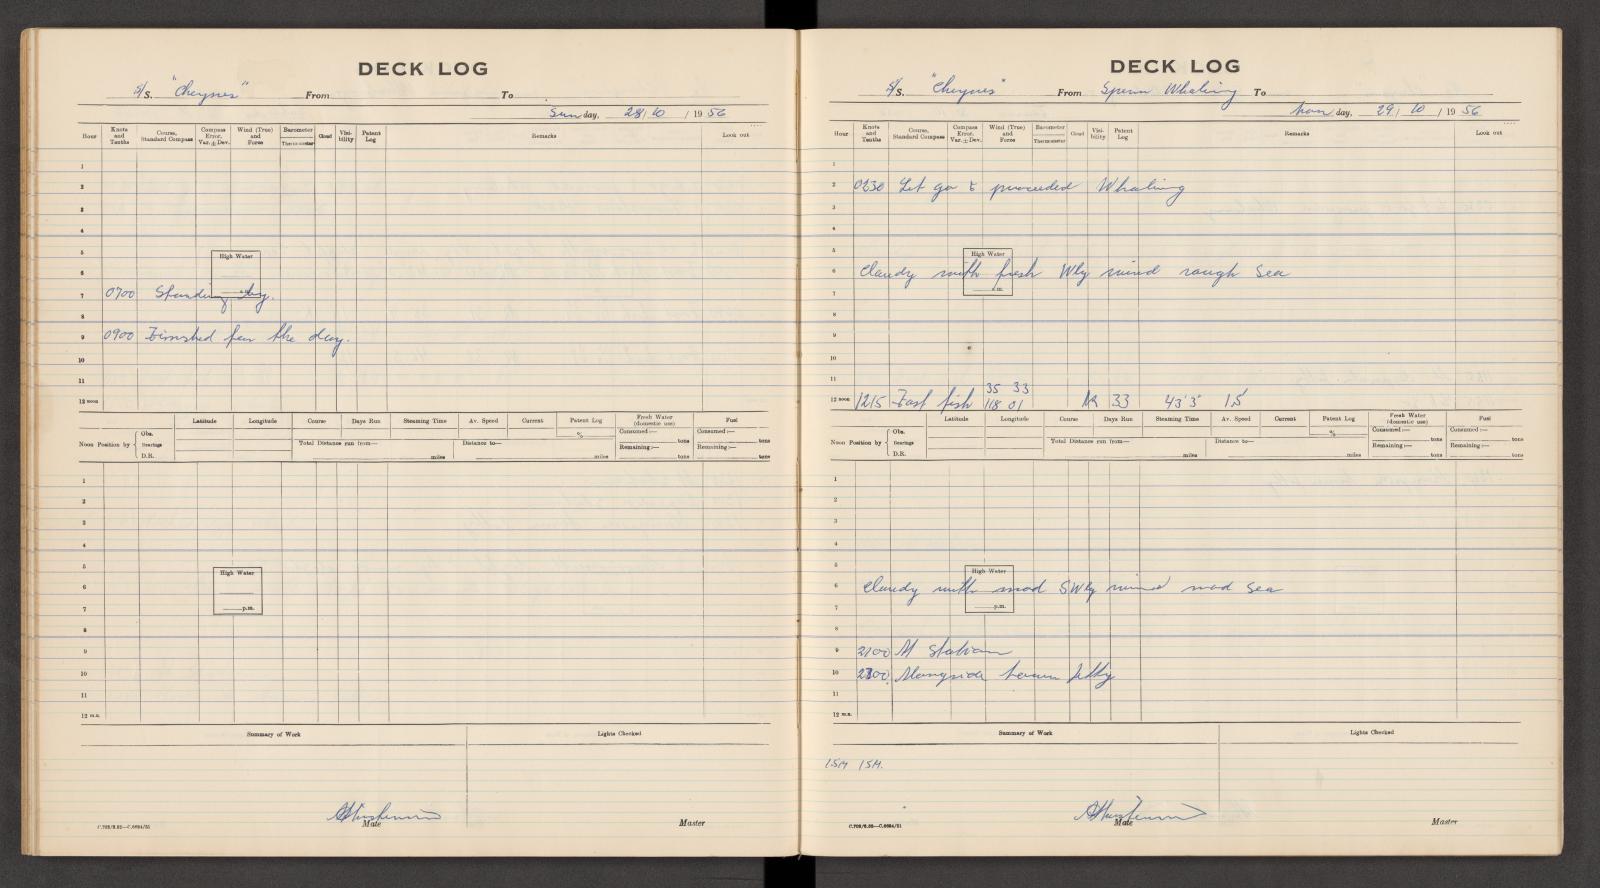 DECK LOG
S/S. "Cheynes" From To
Sun day, 28/10/1956
Hour Knots and Tenths Course, Standard Compass Compass Error. Var. ± Dev. Wind (True) and Force Barometer Thermometer Cloud Visibility Patent Log Remarks Look out
1
2
3
4
5
High Water
6
7 0700 Standing by.
8
9 0900 Finished for the day.
10
11
12 noon
Latitude Longitude Course Days Run Steaming Time Av. Speed Current Patent Log % Fresh Water (domestic use) Fuel
Noon Position by Obs. Bearings D.R. Total Distance run from— miles Distance to— Consumed:— tons Remaining:— tons Consumed:— tons Remaining:— tons
1
2
3
4
5
High Water
6
7 p.m.
8
9
10
11
12 m.n.
Summary of Work Lights Checked
Mate Master
C.702/2.52—C.6694/51
DECK LOG
S/S. "Cheynes" From Sperm Whaling To
Mon day, 29/10/1956
Hour Knots and Tenths Course, Standard Compass Compass Error. Var. ± Dev. Wind (True) and Force Barometer Thermometer Cloud Visibility Patent Log Remarks Look out
1
2 0230 Let go & proceeded Whaling
3
4
5
High Water
6 Cloudy with fresh Wly wind rough sea
7 a.m.
8
9
10
11 35 33
12 noon 1215 Fast fish 118 01 M 33 43'3" 15'
Latitude Longitude Course Days Run Steaming Time Av. Speed Current Patent Log % Fresh Water (domestic use) Fuel
Noon Position by Obs. Bearings D.R. Total Distance run from— miles Distance to— Consumed:— tons Remaining:— tons Consumed:— tons Remaining:— tons
1
2
3
4
5
High Water
6 Cloudy with mod SWly wind mod sea
7 p.m.
8
9 2100 At station
10 2200 Alongside town Jetty
11
12 m.n.
Summary of Work Lights Checked
1SM 1SM.
Mate Master
C.702/2.52—C.6694/51